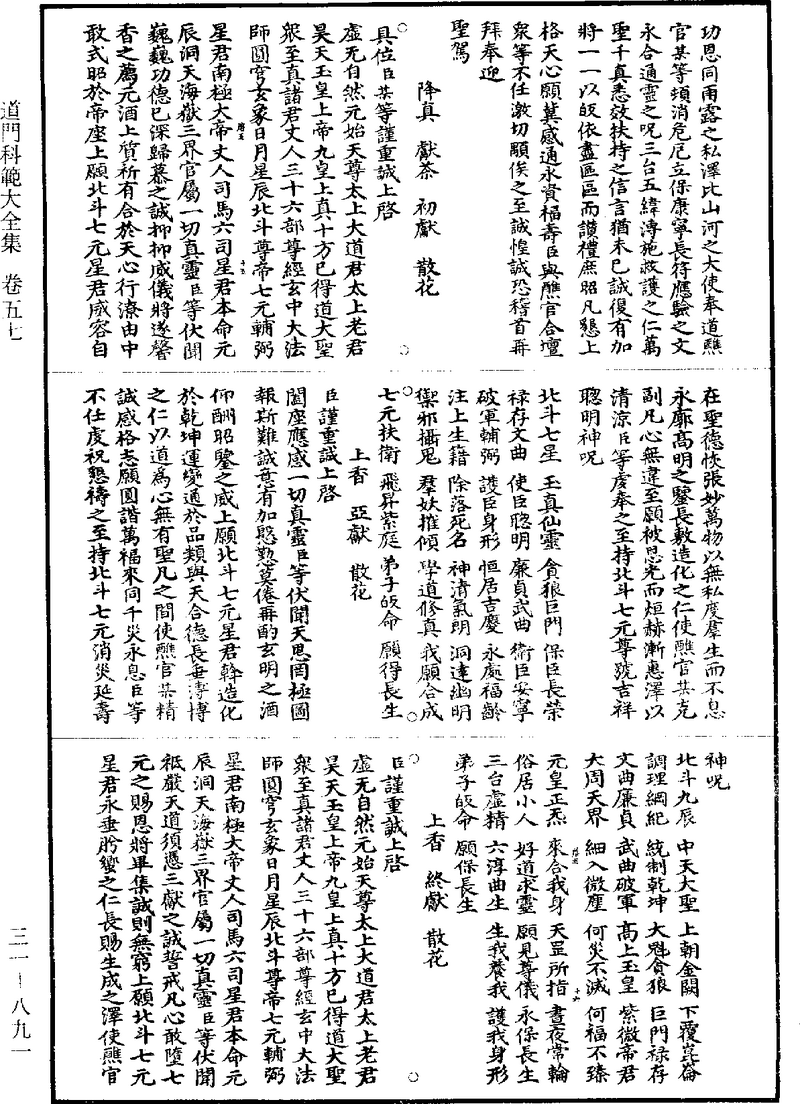 道門科範大全集　卷五七
三一—八九一
功恩同雨露之私澤比山河之大使奉道醮
官某等頓消危厄立保康寧長符應驗之文
永合通靈之呪三台五緯溥施救護之仁萬
聖千真悉效扶持之信言猶未已誠復有加
將一一以皈依盡區區而讚禮庶昭凡懇上
格天心願冀感通永資福壽臣與醮官合壇
衆等不任激切顒俟之至誠惶誠恐稽首再
拜奉迎
聖駕
降真　獻茶　初獻　散花
具位臣某等謹重誠上啓
虛无自然元始天尊太上大道君太上老君
昊天玉皇上帝九皇上真十方已得道大聖
衆至真諸君丈人三十六部尊經玄中大法
師圓穹玄象日月星辰北斗尊帝七元輔弼
星君南極大帝丈人司馬六司星君本命元
辰洞天海嶽三界官屬一切真靈臣等伏聞
巍巍功德已深歸慕之誠抑抑威儀將遂馨
香之薦元酒上質所有合於天心行潦由中
敢式昭於帝座上願北斗七元星君威容自
在聖德恢張妙萬物以無私度羣生而不息
永廓高明之鑒長敷造化之仁使醮官某克
副凡心無違至願被恩光而烜赫漸惠澤以
清涼臣等虔奉之至持北斗七元尊號吉祥
聰明神呪
北斗七星　玉真仙靈　貪狼巨門　保臣長榮
祿存文曲　使臣聰明　廉貞武曲　衛臣安寧
破軍輔弼　護臣身形　恒居吉慶　永處福齡
注上生籍　除落死名　神清氣朗　洞達幽明
禦邪攝鬼　羣妖摧傾　學道修真　我願合成
七元扶衛　飛昇紫庭　弟子皈命　願得長生
上香　亞獻　散花
臣謹重誠上啓
闔座應感一切真靈臣等伏聞天恩罔極圖
報斯難誠意有加慇懃莫倦再酌玄明之酒
仰酬昭鑒之威上願北斗七元星君斡造化
於乾坤運變通於品類與天合德長垂溥博
之仁以道為心無有聖凡之間使醮官某精
誠感格志願圓諧萬福來同千災永息臣等
不任虔祝懇禱之至持北斗七元消災延壽
神呪
北斗九辰　中天大聖　上朝金闕　下覆崑崙
調理綱紀　統制乾坤　大魁貪狼　巨門祿存
文曲廉貞　武曲破軍　高上玉皇　紫微帝君
大周天界　細入微塵　何災不滅　何福不臻
元皇正炁　來合我身　天罡所指　晝夜常輪
俗居小人　好道求靈　願見尊儀　永保長生
三台虛精　六淳曲生　生我養我　護我身形
弟子皈命　願保長生
上香　終獻　散花
臣謹重誠上啓
虛无自然元始天尊太上大道君太上老君
昊天玉皇上帝九皇上真十方已得道大聖
衆至真諸君丈人三十六部尊經玄中大法
師圓穹玄象日月星辰北斗尊帝七元輔弼
星君南極大帝丈人司馬六司星君本命元
辰洞天海嶽三界官屬一切真靈臣等伏聞
祗嚴天道須憑三獻之誠誓戒凡心敢墮七
元之賜恩將畢集誠則無窮上願北斗七元
星君永垂肸蠁之仁長賜生成之澤使醮官